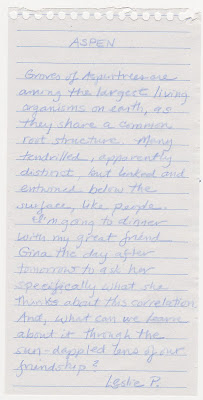 ASPEN
Groves of Aspen trees are
among the largest living
organisms on earth, as
they share a common
root structure. Many
tendrilled, apparently
distinct, but linked and
entwined below the
surface, like people.
I'm going to dinner
with my great friend
Gina the day after
tomorrow to ask her
specifically what she
thinks about this correlation.
And, what can we learn
about it through the
sun-dappled lens of our
friendship?
Leslie P.